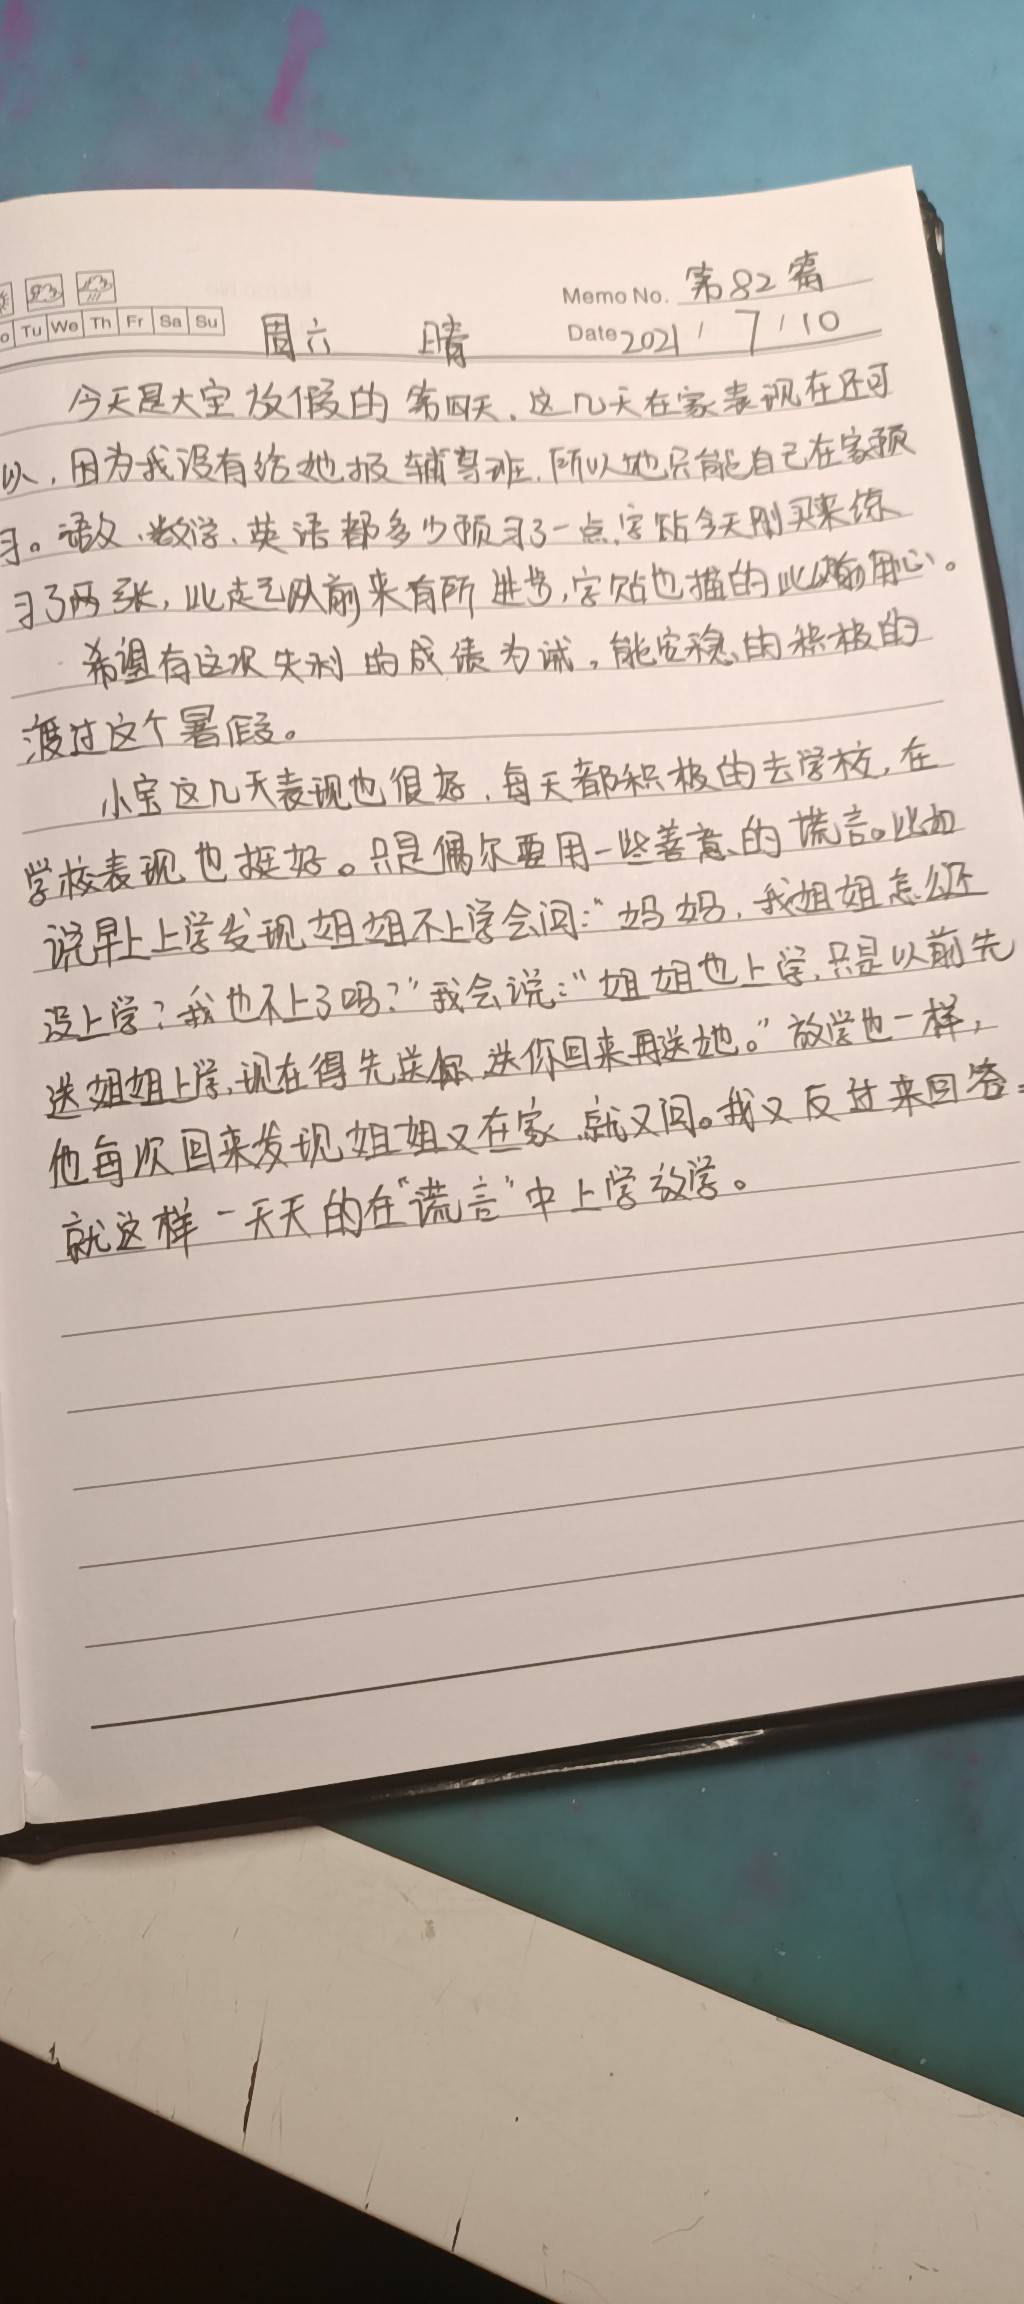 Memo No. 第82篇
o Tu We Th Fr Sa Su
周六 晴
Date 2021 / 7 / 10
今天是大宝放假的第四天,这几天在家表现在还可
以,因为我没有给她报辅导班,所以她只能自己在家预
习。语文、数学、英语都多少预习了一点,字贴今天刚买来练
习了两张,比走之以前来有所进步,字贴也描的比以前用心。
希望有这次失利的成绩为诫,能安稳的积极的
渡过这个暑假。
小宝这几天表现也很好,每天都积极的去学校,在
学校表现也挺好。只是偶尔要用一些善意的谎言。比如
说早上上学发现姐姐不上学会问:“妈妈,我姐姐怎么还
没上学?我也不上了吗?”我会说:“姐姐也上学,只是以前先
送姐姐上学,现在得先送你,送你回来再送她。”放学也一样,
他每次回来发现姐姐又在家,就又问。我又反过来回答:
就这样一天天的在“谎言”中上学放学。